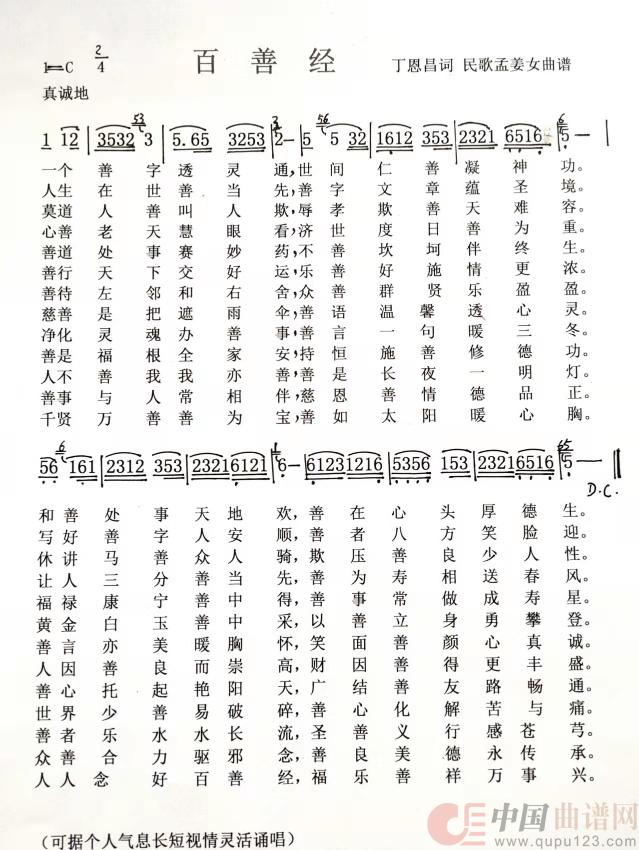 1=C 2/4 百善经 丁恩昌词 民歌孟姜女曲谱
真诚地
1 12 | 3532 3 | 5.65 3253 | 2- | 5 5 32 | 1612 353 | 2321 6516 | 5 — |
一个善字透灵通,世间仁善凝神功。
人生在世善当先,善字文章蕴圣境。
莫道人善叫人欺,辱孝欺善天难容。
心善老天慧眼看,济世度日善为重。
善道处事赛妙药,不善坎坷伴终生。
善行天下交好运,乐善好施情更浓。
善待左邻和右舍,众善群贤乐盈盈。
慈善是把遮雨伞,善语温馨透心灵。
净化灵魂办善事,善言一句暖三冬。
善是福根全家安,持恒施善修德功。
人不善我我亦善,善是长夜一明灯。
善事与人常相伴,慈恩善情德品正。
千贤万善善为宝,善如太阳暖心胸。
56 161 | 2312 353 | 2321 6121 | 6- | 6123 1216 | 5356 153 | 2321 6516 | 5 — ‖
D.C.
和善处事天地欢,善在心头厚德生。
写好善字人安顺,善者八方笑脸迎。
休讲马善众人骑,欺压善良少人性。
让人三分善当先,善为寿相送春风。
福禄康宁善中得,善事常做成寿星。
黄金白玉善中采,以善立身勇攀登。
善言亦美暖胸怀,笑面善颜心真诚。
人因善良而崇高,财因善得更丰盛。
善心托起艳阳天,广结善友路畅通。
世界少善易破碎,善心化解苦与痛。
善者乐水水长流,圣善义行感苍穹。
众善合力驱邪念,善良美德永传承。
人人念好百善经,福乐善祥万事兴。
(可据个人气息长短视情灵活诵唱)
中国曲谱网
www.qupu123.com